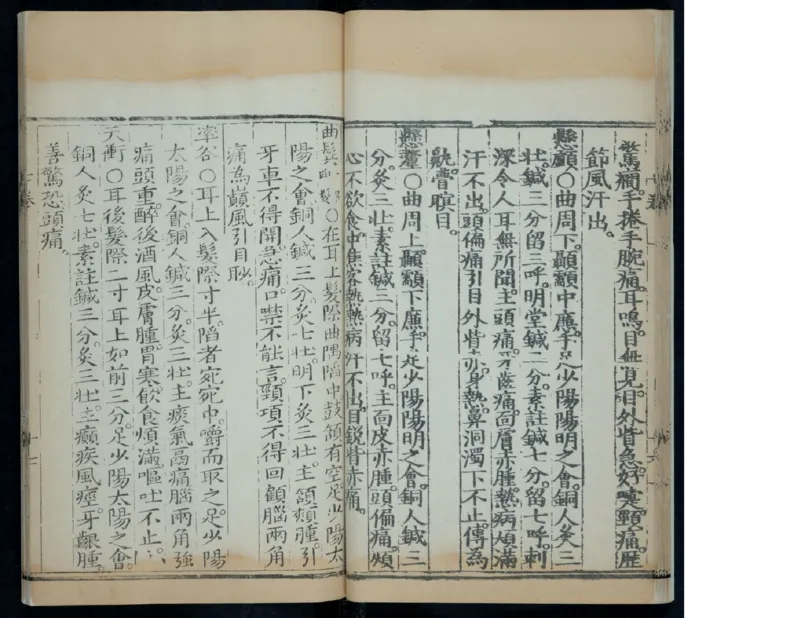 驚癇。手捲手腕痛。耳鳴。目無見。目外眥急。好嚏。頸痛。歷
節風汗出。
懸顱〇曲周下。顳顬中廉。手足少陽陽明之會。銅人灸三
壯。鍼三分。留三呼。明堂鍼二分。素註鍼七分。留七呼。刺
深令人耳無所聞。主頭痛。牙齒痛。面膚赤腫。熱病煩滿。
汗不出。頭偏痛引目外眥赤。身熱。鼻洞濁下不止。傳為
鼽衊瞑目。
懸釐〇曲周上。顳顬下廉。手足少陽陽明之會。銅人鍼三
分。灸三壯。素註鍼三分。留七呼。主面皮赤腫。頭偏痛。煩
心不欲食。中焦客熱。熱病汗不出。目銳眥赤痛。
曲鬢〇在耳上髮際曲隅陷中。鼓頷有空。足少陽太
陽之會。銅人鍼三分。灸七壯。明下灸三壯。主頷頰腫。引
牙車不得開。急痛。口噤不能言。頸項不得回顧。腦兩角
痛為巔風。引目眇。
率谷〇耳上入髮際寸半陷者宛宛中。嚼而取之。足少陽
太陽之會。銅人鍼三分。灸三壯。主痰氣膈痛。腦兩角強
痛。頭重。醉後酒風。皮膚腫。胃寒。飲食煩滿。嘔吐不止。
天衝〇耳後髮際二寸。耳上如前三分。足少陽太陽之會。
銅人灸七壯。素註鍼三分。灸三壯。主癲疾風痙。牙齦腫。
善驚恐。頭痛。